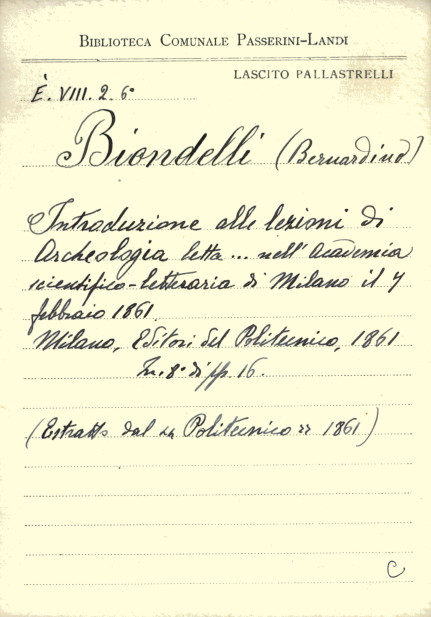 BIBLIOTECA COMUNALE PASSERINI-LANDI
LASCITO PALLASTRELLI
È. VIII. 2. 6°
Biondelli (Bernardino)
Introduzione alle lezioni di
Archeologia letta ... nell' Accademia
scientifico-letteraria di Milano il 7
febbraio 1861.
Milano, Editori del Politecnico, 1861
In. 8° di pp. 16.
(Estratto dal « Politecnico » 1861)
C